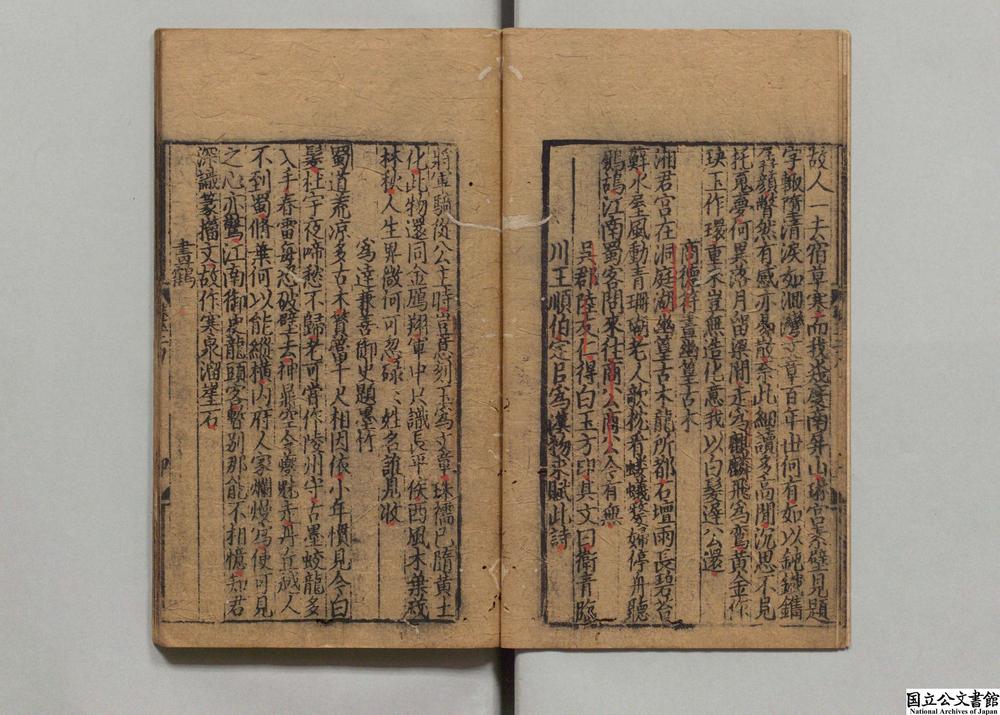 故人一去宿草寒而我幾度南屏山琳宮素壁見題
字輙墮清淚如洄灣文章百年世何有如以鈍
孱顔瞥然有感亦易散奈此細讀多高閒沉思不見
托蒐夢何異落月留梁間走為麒麟飛為鸞黃金作
玦玉作環重不豈無造化意我以白髮遲公還
商德符畫幽篁古木
湘君宮在洞庭湖幽篁古木龍所都石壇雨長碧苔
蘚水屋風動青珊瑚老人欹枕看螻蟻嫠婦停舟聽
鷓鴣江南蜀客閒來往商公商公今有無
吳郡陸友仁得白玉方印其文曰衛青臨
川王順伯定以為漢物求賦此詩
將軍騎從公主時豈忍刻玉為文章珠襦已隨黃土
化此物還同金鴈翔軍中只識長平侯西風木葉茂
林秋人生界微何可忽碌碌姓名誰見收
為達兼善御史題墨竹
蜀道荒凉多古木篔簹千尺相因依小年慣見今白
髮杜宇夜啼愁不歸老可嘗作陵州守古墨蛟龍多
入手春雷每恐破壁去神鼎空令夔魅走丹丘越人
不到蜀脩葉何以能縱橫内府人家爛熳寫使可見
之心亦驚江南御史龍頭客暫别那能不相憶知君
深識篆籀文故作寒泉溜崖石
畫鶴
国立公文書館
National Archives of Japan